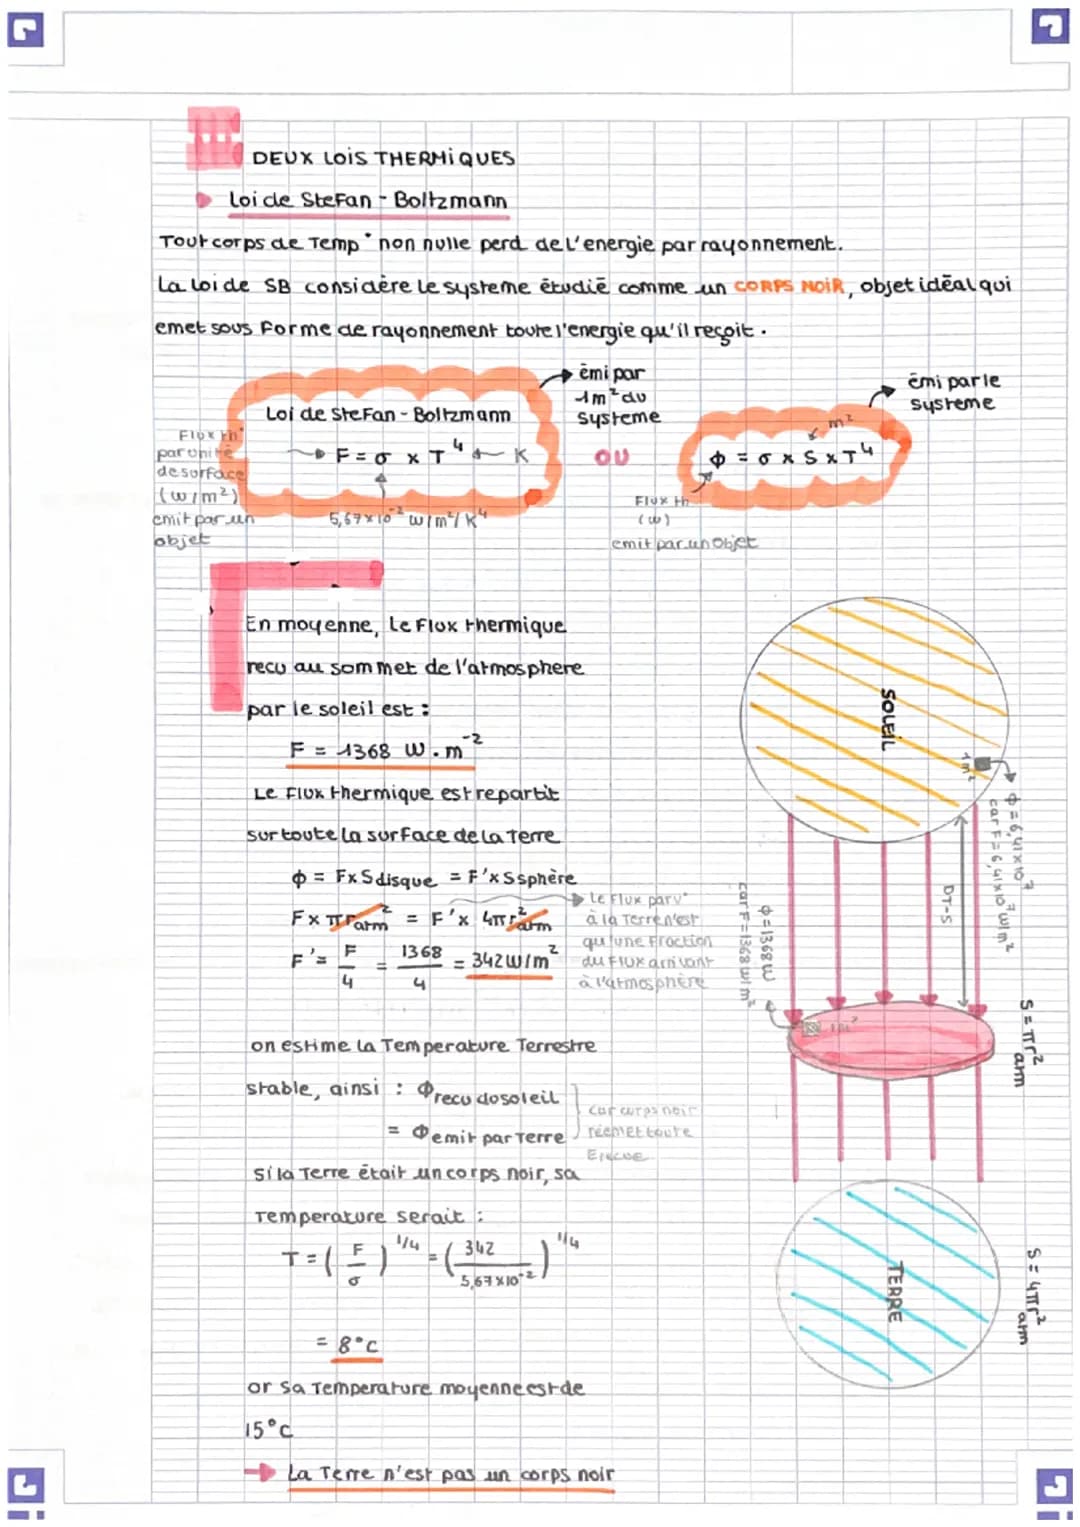 DEUX LOIS THERMIQUES
Loi de Stefan - Boltzmann
Tout corps de Temp° non nulle perd de l'energie par rayonnement.
La loi de SB considère le systeme étudié comme un CORPS NOIR, objet idéal qui
emet sous forme de rayonnement toute l'energie qu'il reçoit.
émi par
1m² du
systeme
émi par le
systeme
Loi de Stefan - Boltzmann
Flux th°
par unité
de surface
(W/m²)
emit par un
objet
F = σ x T⁴ K
5,67x10⁻² W/m²/K⁴
OU
m²
Φ = σ x S x T⁴
Flux th
(W)
emit par un objet
En moyenne, le Flux thermique
recu au sommet de l'atmosphere
par le soleil est :
F = 1368 W.m⁻²
Le Flux thermique est repartit
sur toute la surface de la Terre
Φ = F x S disque = F' x S sphère
F x πr²atm = F' x 4πr²atm
F' = F/4 = 1368/4 = 342 W/m²
Le Flux parv°
à la Terre n'est
qu'une fraction
du Flux arrivant
à l'atmosphère
on estime la Temperature Terrestre
stable, ainsi : Φ recu du soleil
= Φ emit par Terre
Car corps noir
réemet toute
E recue
Si la Terre était un corps noir, sa
Temperature serait :
T = (F/σ)^1/4 = (342/5,67x10⁻²)^1/4
= 8°C
or sa Temperature moyenne est de
15°C
La Terre n'est pas un corps noir
SOLEIL
1m²
Φ = 6,41x10⁷
car F = 6,41x10⁷ W/m²
DT-S
Φ = 1368 W
car F = 1368 W/m²
1m²
S = πr²atm
TERRE
S = 4πr²atm